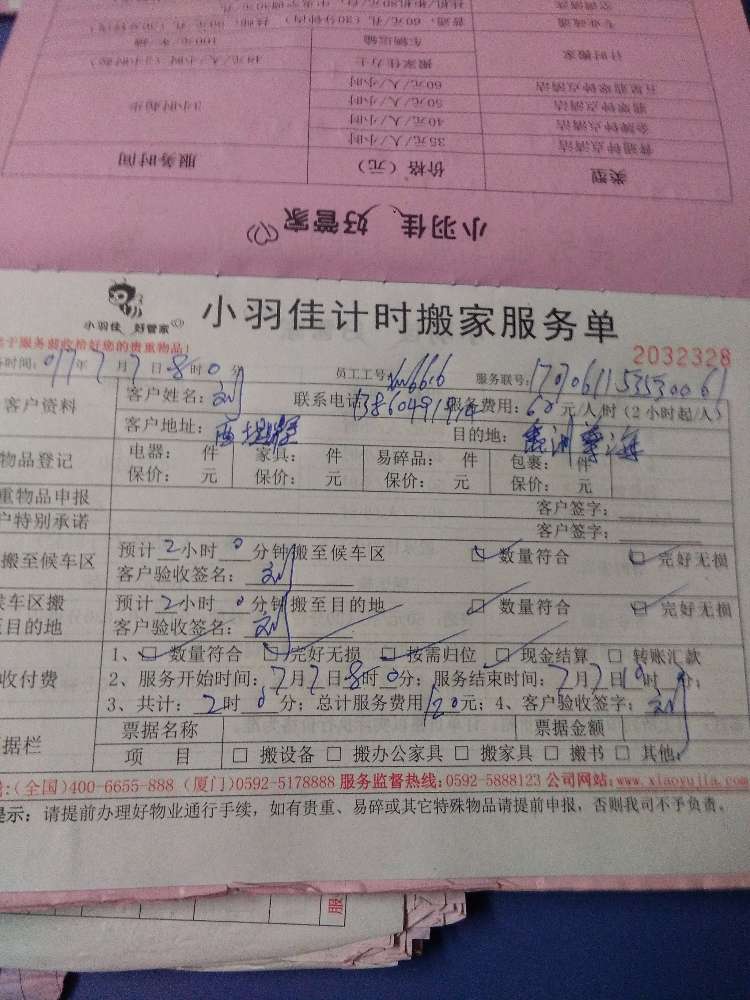 专业疏通 普通：60元/孔
计时搬家 搬家佳力士 48元/人/小时
车辆运输 100元/车/趟
五星翡翠钟点清洁 60元/人/小时
翡翠钟点清洁 50元/人/小时
金牌钟点清洁 40元/人/小时 3小时起步
普通钟点清洁 35元/人/小时
类型 价格（元） 服务时间
小羽佳 好管家
小羽佳 好管家
小羽佳计时搬家服务单
于服务前收拾好您的贵重物品！
2032328
时间：017年7月7日8时0分 员工工号： 服务联号：
客户资料 客户姓名：刘 联系电话 服务费用：60元/人/时（2小时起/人）
客户地址：西堤 目的地：
物品登记 电器： 件 家具： 件 易碎品： 件 包裹： 件
保价： 元 保价： 元 保价： 元 保价： 元
重物品申报 客户签字：
户特别承诺 客户签字：
搬至候车区 预计2小时0分钟搬至候车区 数量符合 完好无损
客户验收签名：刘
候车区搬至目的地 预计2小时0分钟搬至目的地 数量符合 完好无损
客户验收签名：刘
收付费 1、数量符合 完好无损 按需归位 现金结算 转账汇款
2、服务开始时间：7月7日8时0分；服务结束时间：7月7日10时 分；
3、共计：2时0分；总计服务费用120元；4、客户验收签字：刘
据栏 票据名称 票据金额
项 目 搬设备 搬办公家具 搬家具 搬书 其他：
：（全国）400-6655-888（厦门）0592-5178888 服务监督热线：0592-5888123 公司网站：www.xiaoyujia.com
提示：请提前办理好物业通行手续，如有贵重、易碎或其它特殊物品请提前申报，否则我司不予负责。
服